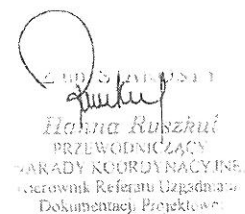 Hanna Ruszkul
PRZEWODNICZĄCY
NARADY KOORDYNACYJNEJ
Kierownik Referatu Uzgadniania
Dokumentacji Projektowej